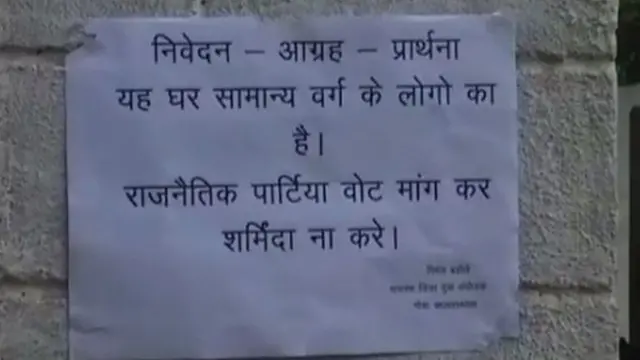 निवेदन – आग्रह – प्रार्थना
यह घर सामान्य वर्ग के लोगो का
है।
राजनैतिक पार्टिया वोट मांग कर
शर्मिंदा ना करे।